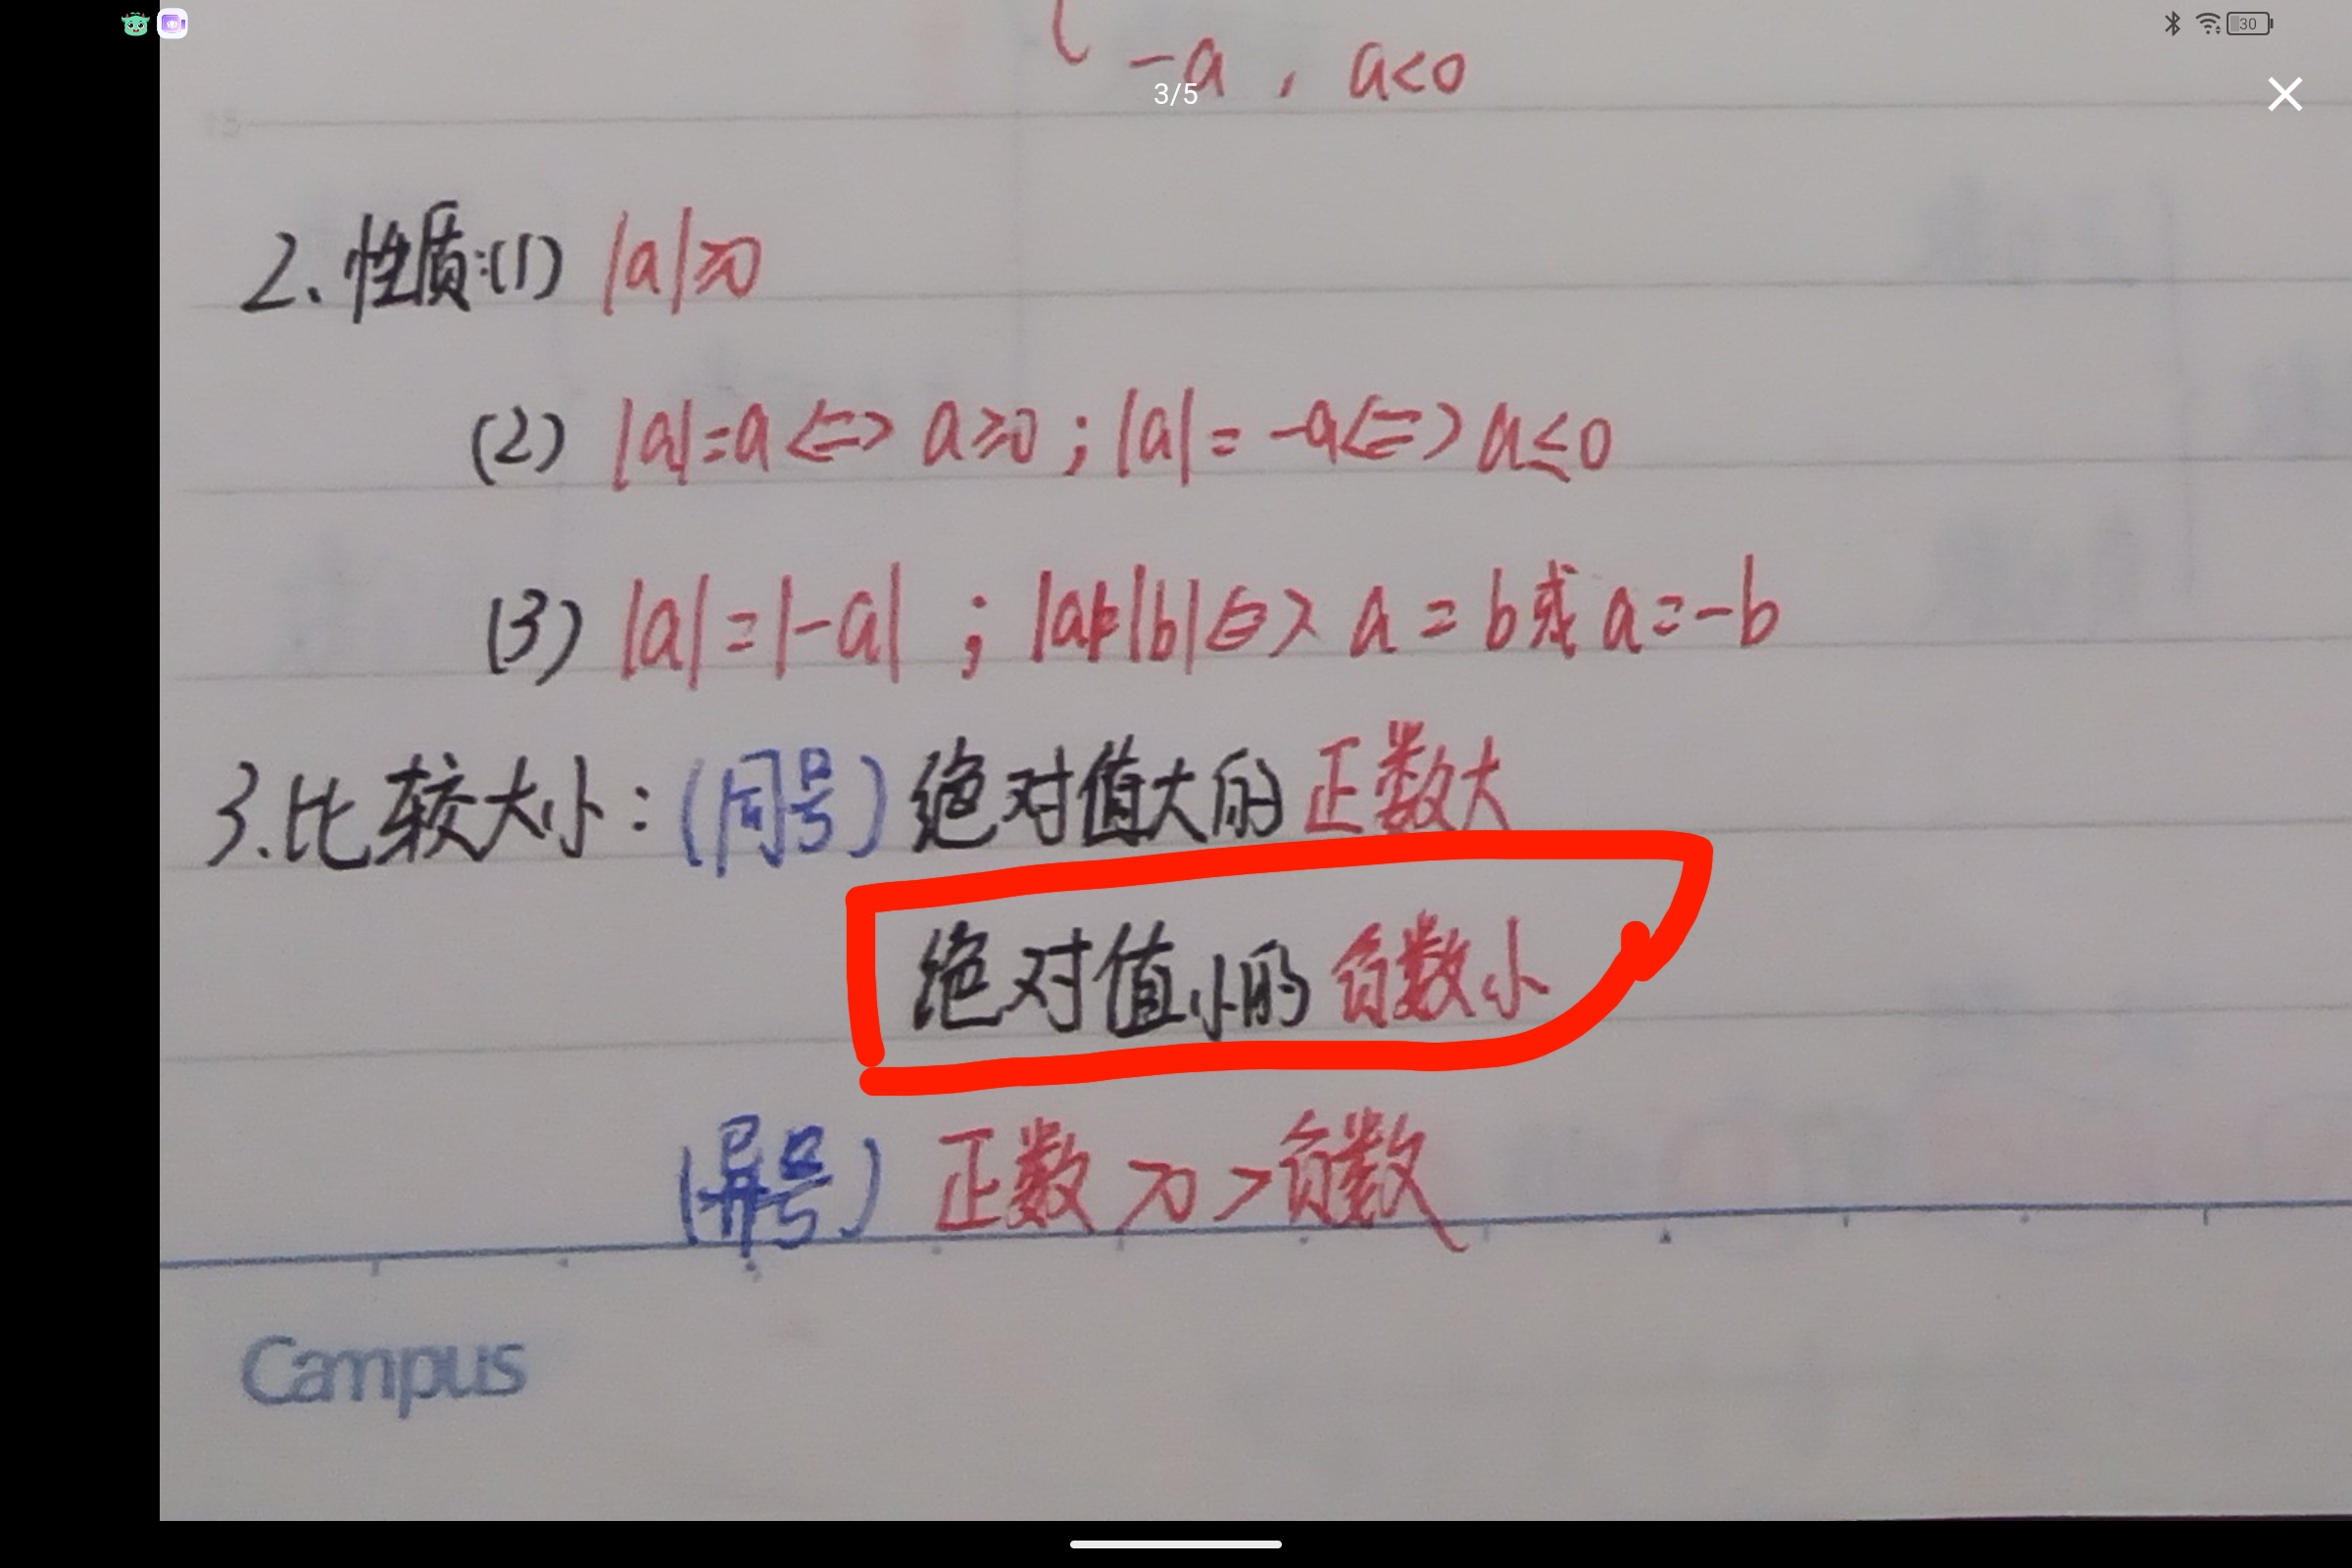 30
-a , a<0
3/5
15
2、性质:(1) |a|≥0
(2) |a|=a<=> a≥0 ; |a| = -a<=> a≤0
(3) |a|=|-a| ; |a|=|b|<=> a = b或 a=-b
3.比较大小:(同号)绝对值大的正数大
绝对值小的负数小
(异号) 正数 >0 >负数
Campus